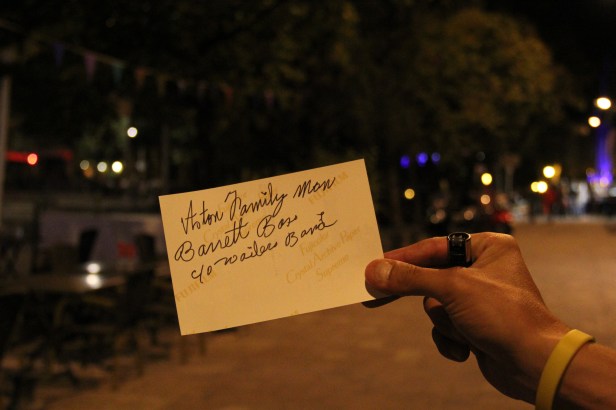 Aston Family Man
Barrett Bass
c/o Wailers Band